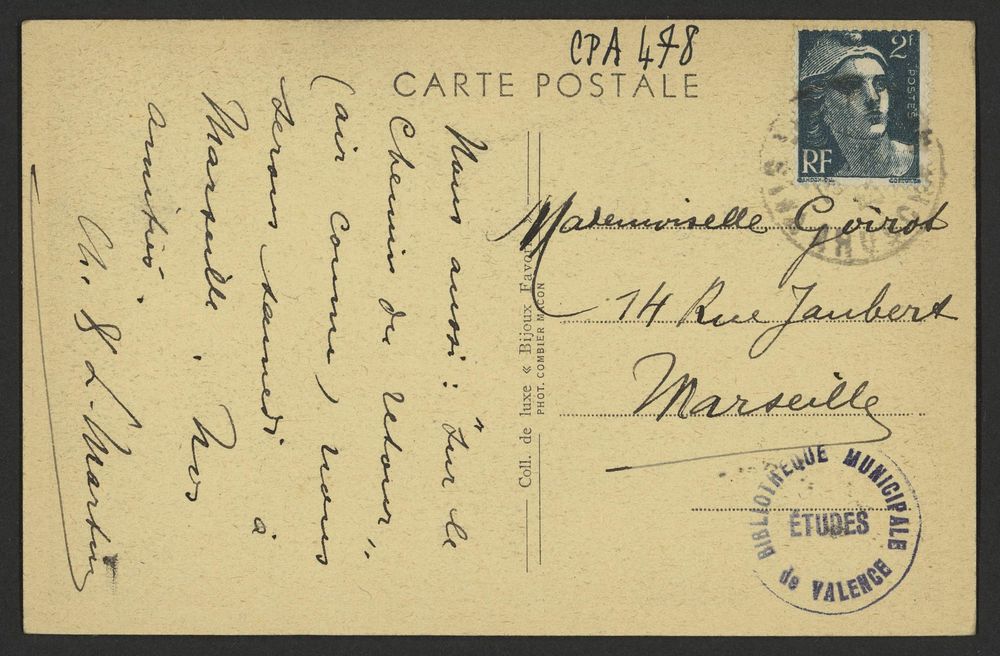 CPA 478
CARTE POSTALE
2F
POSTES
RF
GANDON
Nous aussi : "Sur le
Chemin du retour"
(air connu) nous
serons samedi à
Marseille. Nos
amitiés.
L. Martin
Coll. de luxe « Bijoux Favo
PHOT. COMBIER MACON
Mademoiselle Goirot
14 Rue Jaubert
Marseille
BIBLIOTHEQUE MUNICIPALE
ÉTUDES
de VALENCE